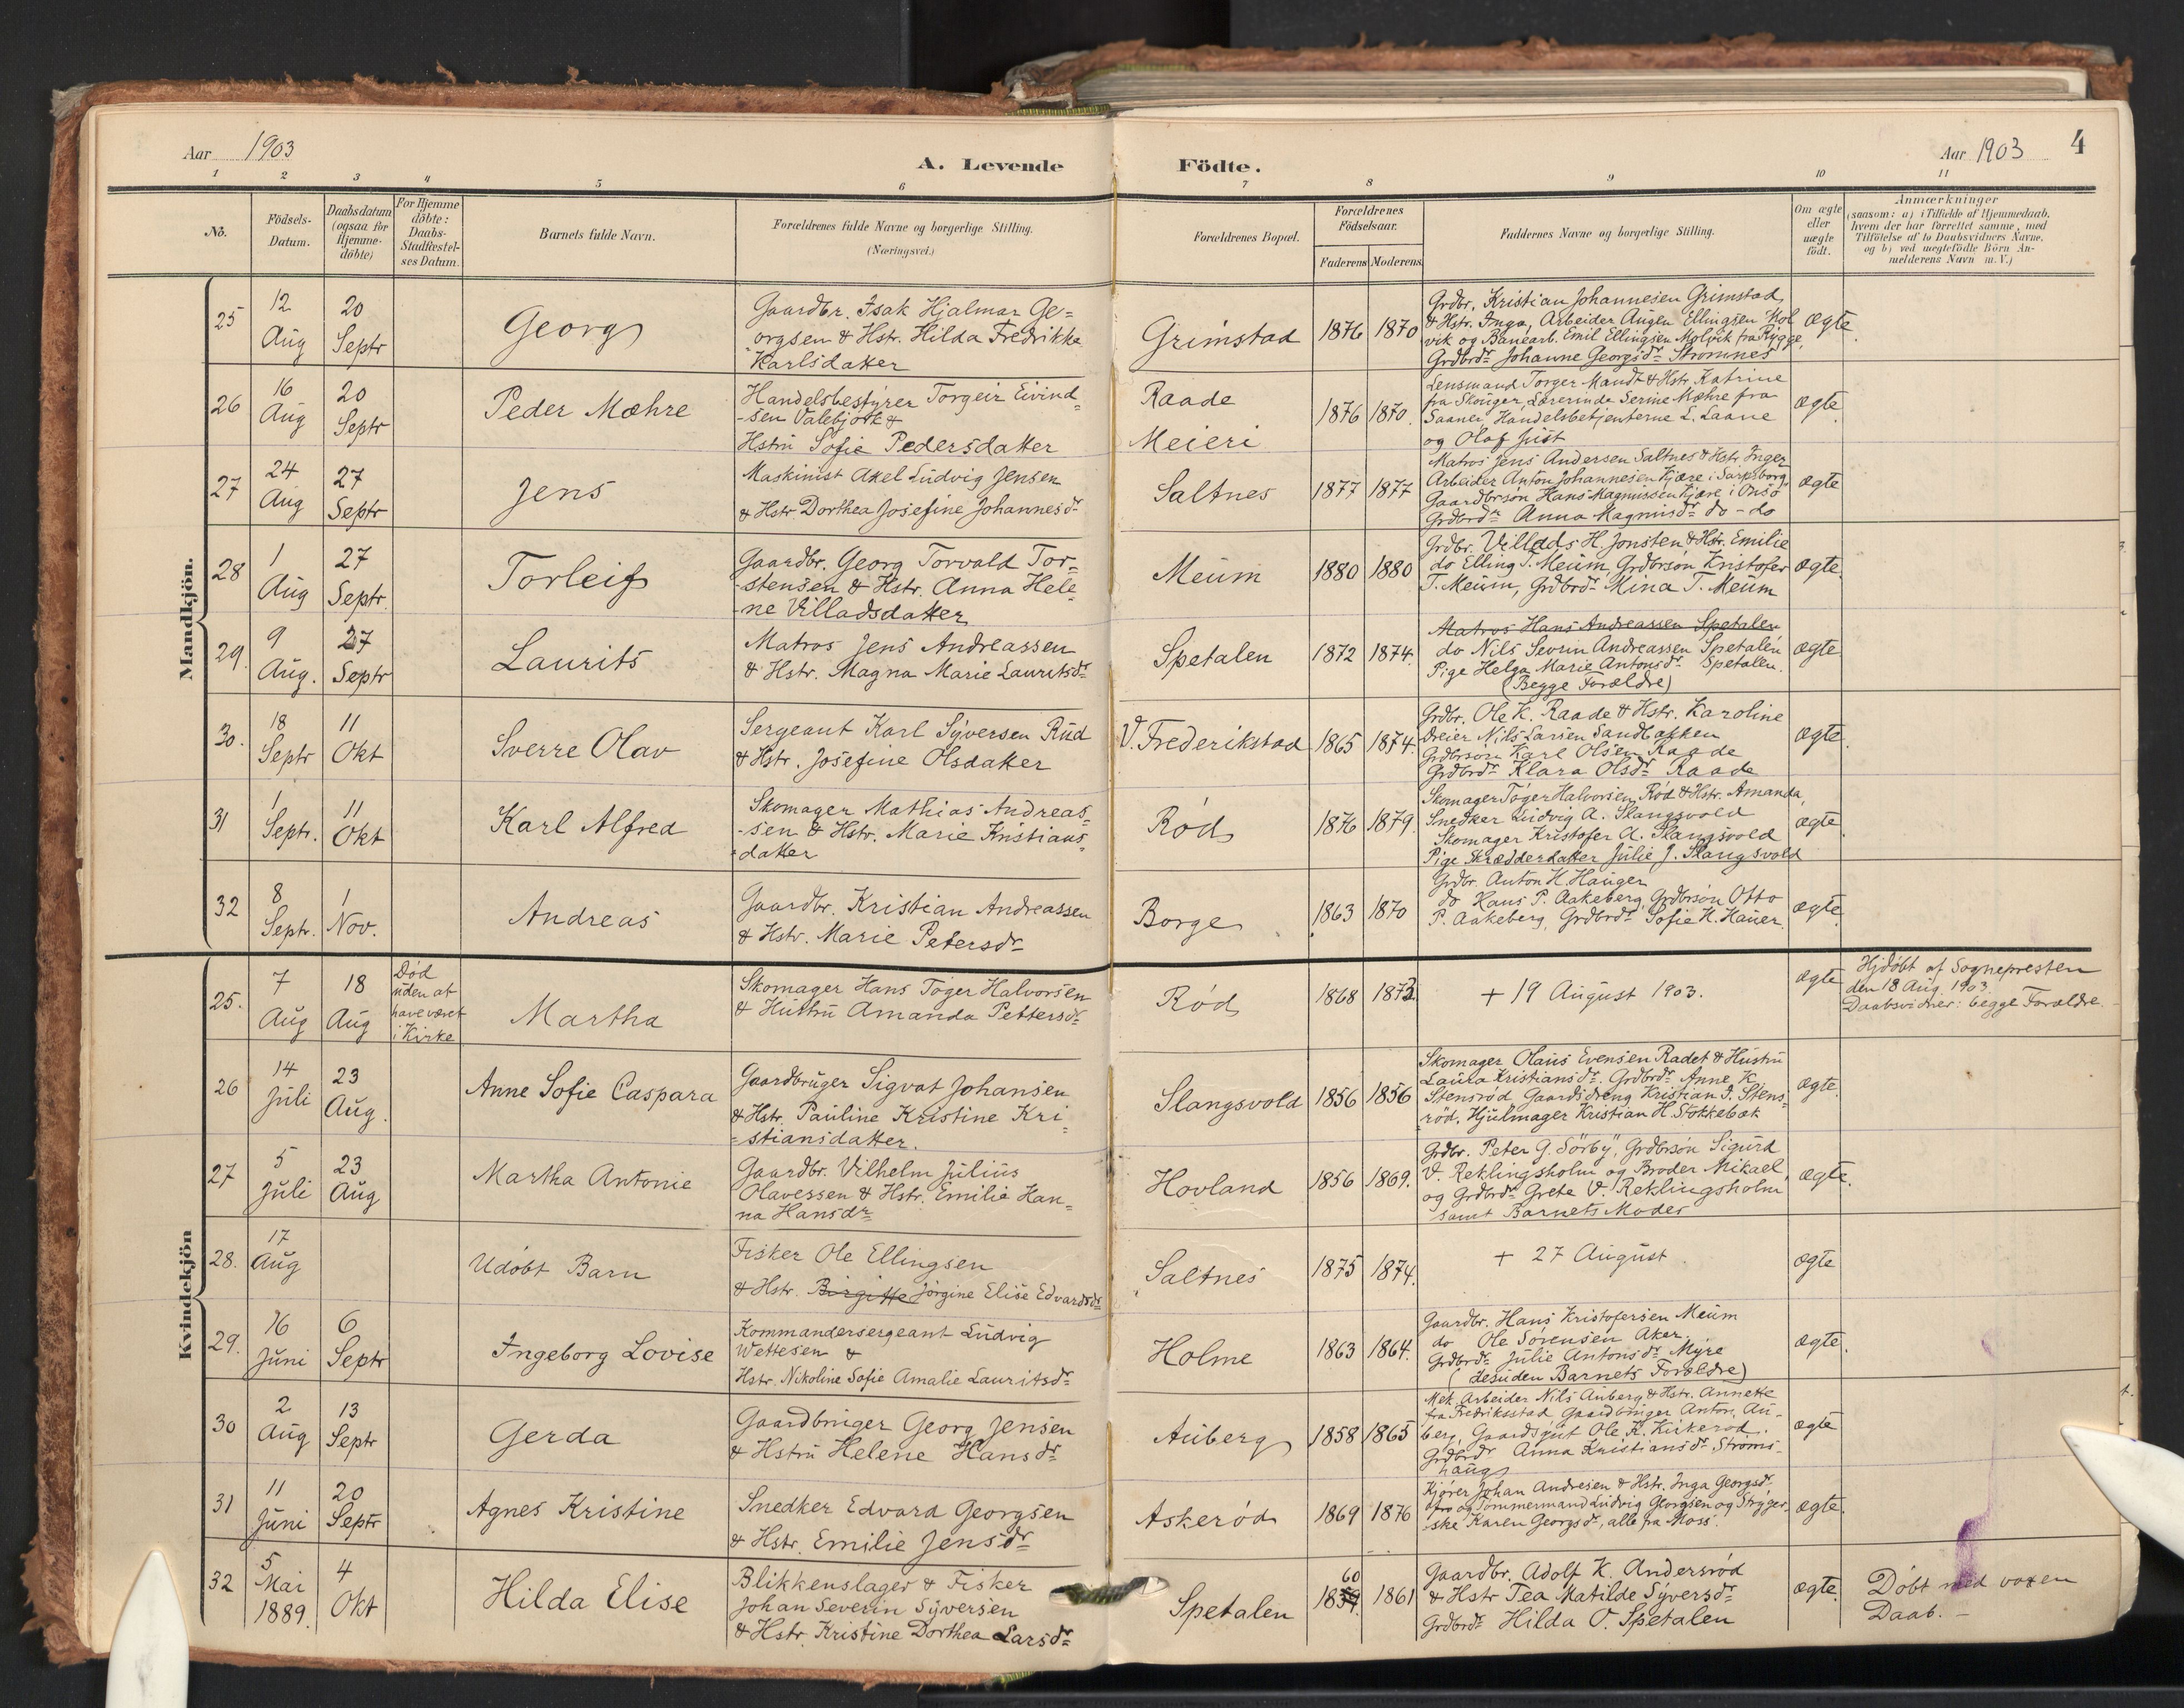 Aar 1903
A. Levende Födte.
Aar 1903 4
1 2 3 4 5 6 7 8 9 10 11
No.
Födsels-
Datum.
Daabsdatum
(ogsaa for
Hjemme-
döbte)
For Hjemme
döbte:
Daabs-
Stadfæstel-
ses Datum.
Barnets fulde Navn.
Forældrenes fulde Navne og borgerlige Stilling.
(Næringsvei.)
Forældrenes Bopæl.
Forældrenes
Födselsaar.
Faderens Moderens
Faddernes Navne og borgerlige Stilling.
Om ægte
eller
uægte
födt.
Anmærkninger
(saasom: a) i Tilfælde af Hjemmedaab,
hvem der har forrettet samme, med
Tilföielse af to Daabsvidners Navne,
og b) ved uægtefödte Börn An-
melderens Navn m. V.)
Mandkjön.
25
12
Aug
20
Septr
Georg
Gaardbr. Isak Hjalmar Ge=
orgsen & Hstr. Hilda Fredrikke
Karlsdatter
Grimstad
1876 1870
Grdbr. Kristian Johannesen Grimstad
& Hstr. Inga, Arbeider Augen Ellingsen Mol
vik og Banearb. Emil Ellingsen Molvik fra Rygge,
Grdbrdr Johanne Georgsdr Strømnes
ægte
26
16
Aug
20
Septr
Peder Mæhre
Handelsbestyrer Torgeir Eivind=
-sen Valebjørk &
Hstru Sofie Pedersdatter
Raade
Meieri
1876 1870
Lensmand Torger Mandt & Hstr Katrine
fra Skouger, Lærerinde Serine Mæhre fra
Saaner, Handelsbetjenterne L. Laane
og Olaf Just
ægte
27
24
Aug
27
Septr
Jens
Maskinist Axel Ludvig Jensen
& Hstr Dorthea Josefine Johannesdr
Saltnes
1877 1877
Matros Jens Andersen Saltnes & Hstr. Inger
Arbeider Anton Johannesen Kjære i Sarpsborg
Gaardbrsøn Hans Magnussen Kjære i Onsø
Grdbrdr Anna Magnusdr do - do
ægte
28
1
Aug
27
Septr.
Torleif
Gaardbr. Georg Torvald Tor=
-stensen & Hstr. Anna Hele
-ne Villadsdatter
Meum
1880 1880
Grdbr. Villads H. Jonsten & Hstr. Emilie
do Elling T. Meum, Grdbrsøn Kristofer
T. Meum, Grdbrdr Mina T. Meum
ægte.
29.
9
Aug.
27
Septr
Laurits
Matros Jens Andreassen
& Hstr. Magna Marie Lauritsdr
Spetalen
1872 1874.
Matros Hans Andreassen Spetalen
do Nils Severin Andreassen Spetalen
Pige Helga Marie Antonsdr Spetalen.
(Begge Forældre)
ægte
30.
18
Septr
11
Okt
Sverre Olav
Sergeant Karl Syversen Rud
& Hstr. Josefine Olsdatter
V. Frederikstad
1865 1874.
Grdbr. Ole K. Raade & Hstr. Karoline
Dreier Nils Larsen Sandbakken
Grdbrsøn Karl Olsen Raade
Grdbrdr Klara Olsdr Raade
ægte
31
1
Septr.
11
Okt
Karl Alfred
Skomager Mathias Andreas=
-sen & Hstr. Marie Kristians=
-datter
Rød
1876 1879.
Skomager Tøger Halvorsen Rød & Hstr. Amanda,
Snedker Ludvig A. Slangsvold
Skomager Kristofer A. Slangsvold
Pige Skrædderdatter Julie J. Slangsvold
ægte
32
8
Septr.
1
Nov.
Andreas
Gaardbr. Kristian Andreassen
& Hstr. Marie Petersdr
Borge
1863 1870
Grdbr. Anton H. Hauger
do Hans P. Aakeberg, Grdbrsøn Otto
P. Aakeberg, Grdbrdr Sofie H. Hauer.
ægte
Kvindekjön
25.
7
Aug
18
Aug
Død
uden at
have været
i Kirke
Martha
Skomager Hans Tøger Halvorsen
& Hustru Amanda Pettersdr
Rød
1868 1873.
+ 19 August 1903.
ægte
Hjdøbt af Sognepresten
den 18 Aug. 1903.
Daabsvidner: begge Forældre.
26
14
Juli
23
Aug.
Anne Sofie Caspara
Gaardbruger Sigvat Johansen
& Hstr. Pauline Kristine Kri=
=stiansdatter.
Slangsvold
1856 1856
Skomager Olaus Evensen Radet & Hustru
Laura Kristiansdr. Grdbrdr Anne K
Stensrød Gaardsdreng Kristian I. Stens=
rød. Hjulmager Kristian H. Stokkebæk
ægte.
27
5
Juli
23
Aug
Martha Antonie
Gaardbr. Vilhelm Julius
Olavessen & Hstr. Emilie Han=
na Hansdr
Hovland
1856 1869.
Grdbr. Peter G. Sørby, Grdbrsøn Sigurd
V. Reklingsholm og Broder Mikael
og Grdbrdr Grete V. Reklingsholm
samt Barnets Moder
ægte.
28.
17
Aug
Udøbt Barn
Fisker Ole Ellingsen
& Hstr. Birgitte Jørgine Elise Edvardsdr
Saltnes
1875 1874.
+ 27 August
ægte
29.
16
Juni
6
Septr
Ingeborg Lovise
Kommandersergeant Ludvig
Wettesen &
Hstr. Nikoline Sofie Amalie Lauritsdr
Holme
1863 1864.
Gaardbr. Hans Kristofersen Meum
do Ole Sørensen Aker
Grdbrdr Julie Antonsdr Myre
(desuden Barnets Forældre)
ægte.
30
2
Aug
13
Septr
Gerda
Gaardbruger Georg Jensen
& Hstru Helene Hansdr
Auberg
1858 1865
Mek. Arbeider Nils Auberg & Hstr. Annette
fra Fredriksstad, Gaardbruger Anton Au-
berg, Gaardsgut Ole K. Kirkerød.
Grdbrdr Anna Kristiansdr Strøms-
haug
ægte
31
11
Juni
20
Septr
Agnes Kristine
Snedker Edvard Georgsen
& Hstr. Emilie Jensdr
Askerød
1869 1876
Kjører Johan Andresen & Hstr. Inga Georgsdr
og Tømmermand Ludvig Georgsen og Stryger-
ske Karen Georgsdr, alle fra Moss.
ægte.
32
5
Mai
1889.
4
Okt
Hilda Elise
Blikkenslager & Fisker
Johan Severin Syversen
& Hstr. Kristine Dorthea Larsdr
Spetalen
60
1859. 1861
Gaardbr. Adolf K. Andersrød
& Hstr Tea Matilde Syversdr
Grdbrdr Hilda O. Spetalen
ægte.
Døbt med voxen
Daab. -